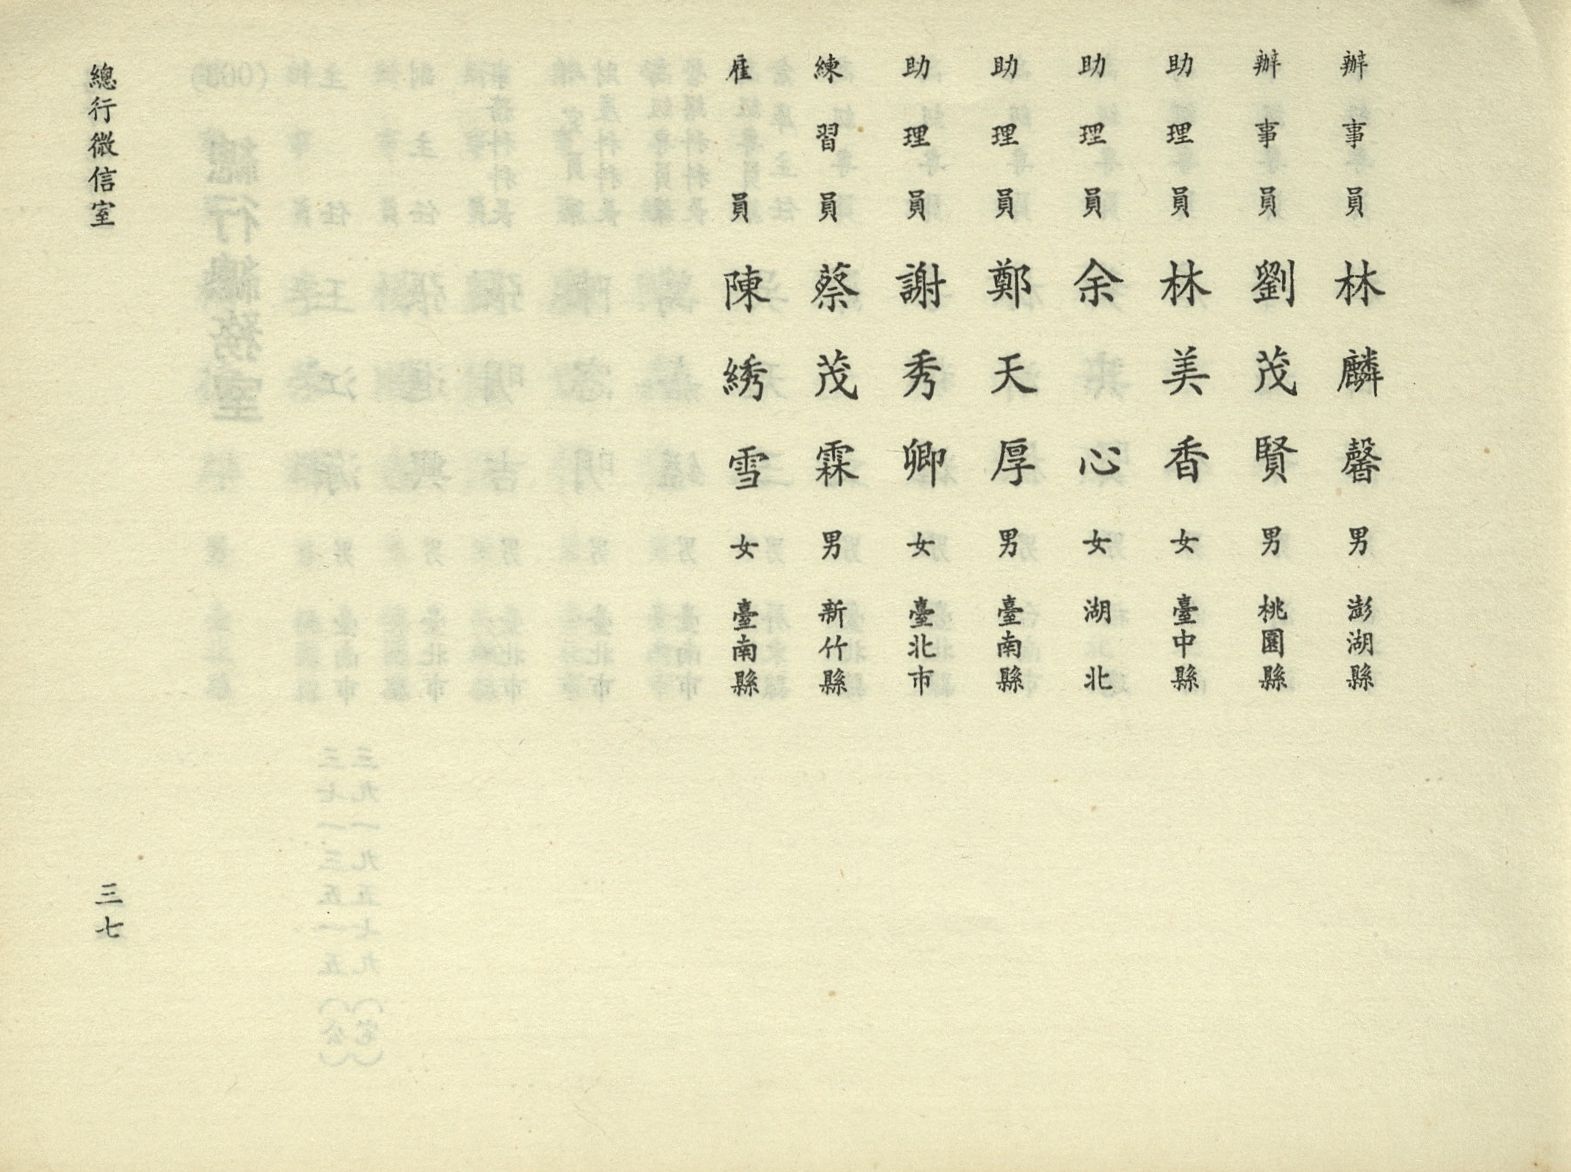 辦事員林麟馨男澎湖縣
辦事員劉茂賢男桃園縣
助理員林美香女臺中縣
助理員余心女湖北
助理員鄭天厚男臺南縣
助理員謝秀卿女臺北市
練習員蔡茂霖男新竹縣
雇員陳綉雪女臺南縣
總行徵信室
三七